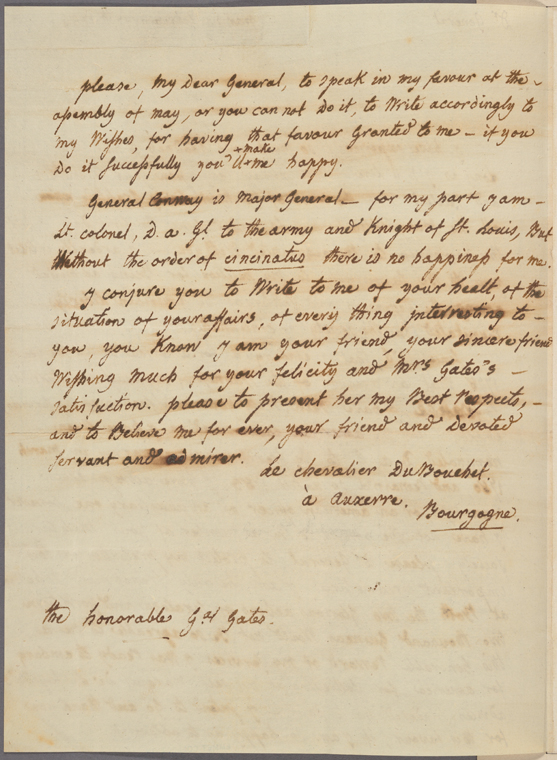 please, My Dear General, to speak in my favour at the -
assembly of may, or you can not Do it, to Write accordingly to
my Wishes, for having that favour Granted to me - if you
make
Do it sucessfully you'll me happy.
General Conway is Major General - for my part y am -
Lt. colonel, D. a. Gl. to the army and Knight of St. Louis, But
Without the order of cincinatus there is no happiness for me.
y conjure you to Write to me of your healt, of the
situation of your affairs, of every thing interresting to -
you, you Know y am your friend, your sincere friend
Wishing much for your felicity and Mrs Gates's -
satisfaction. please to present her my Best respects, -
and to Believe me for ever, your friend and Devoted
servant and admirer.
Le chevalier DuBouchet.
à Auxerre.
Bourgogne.
the honorable Gal Gates.